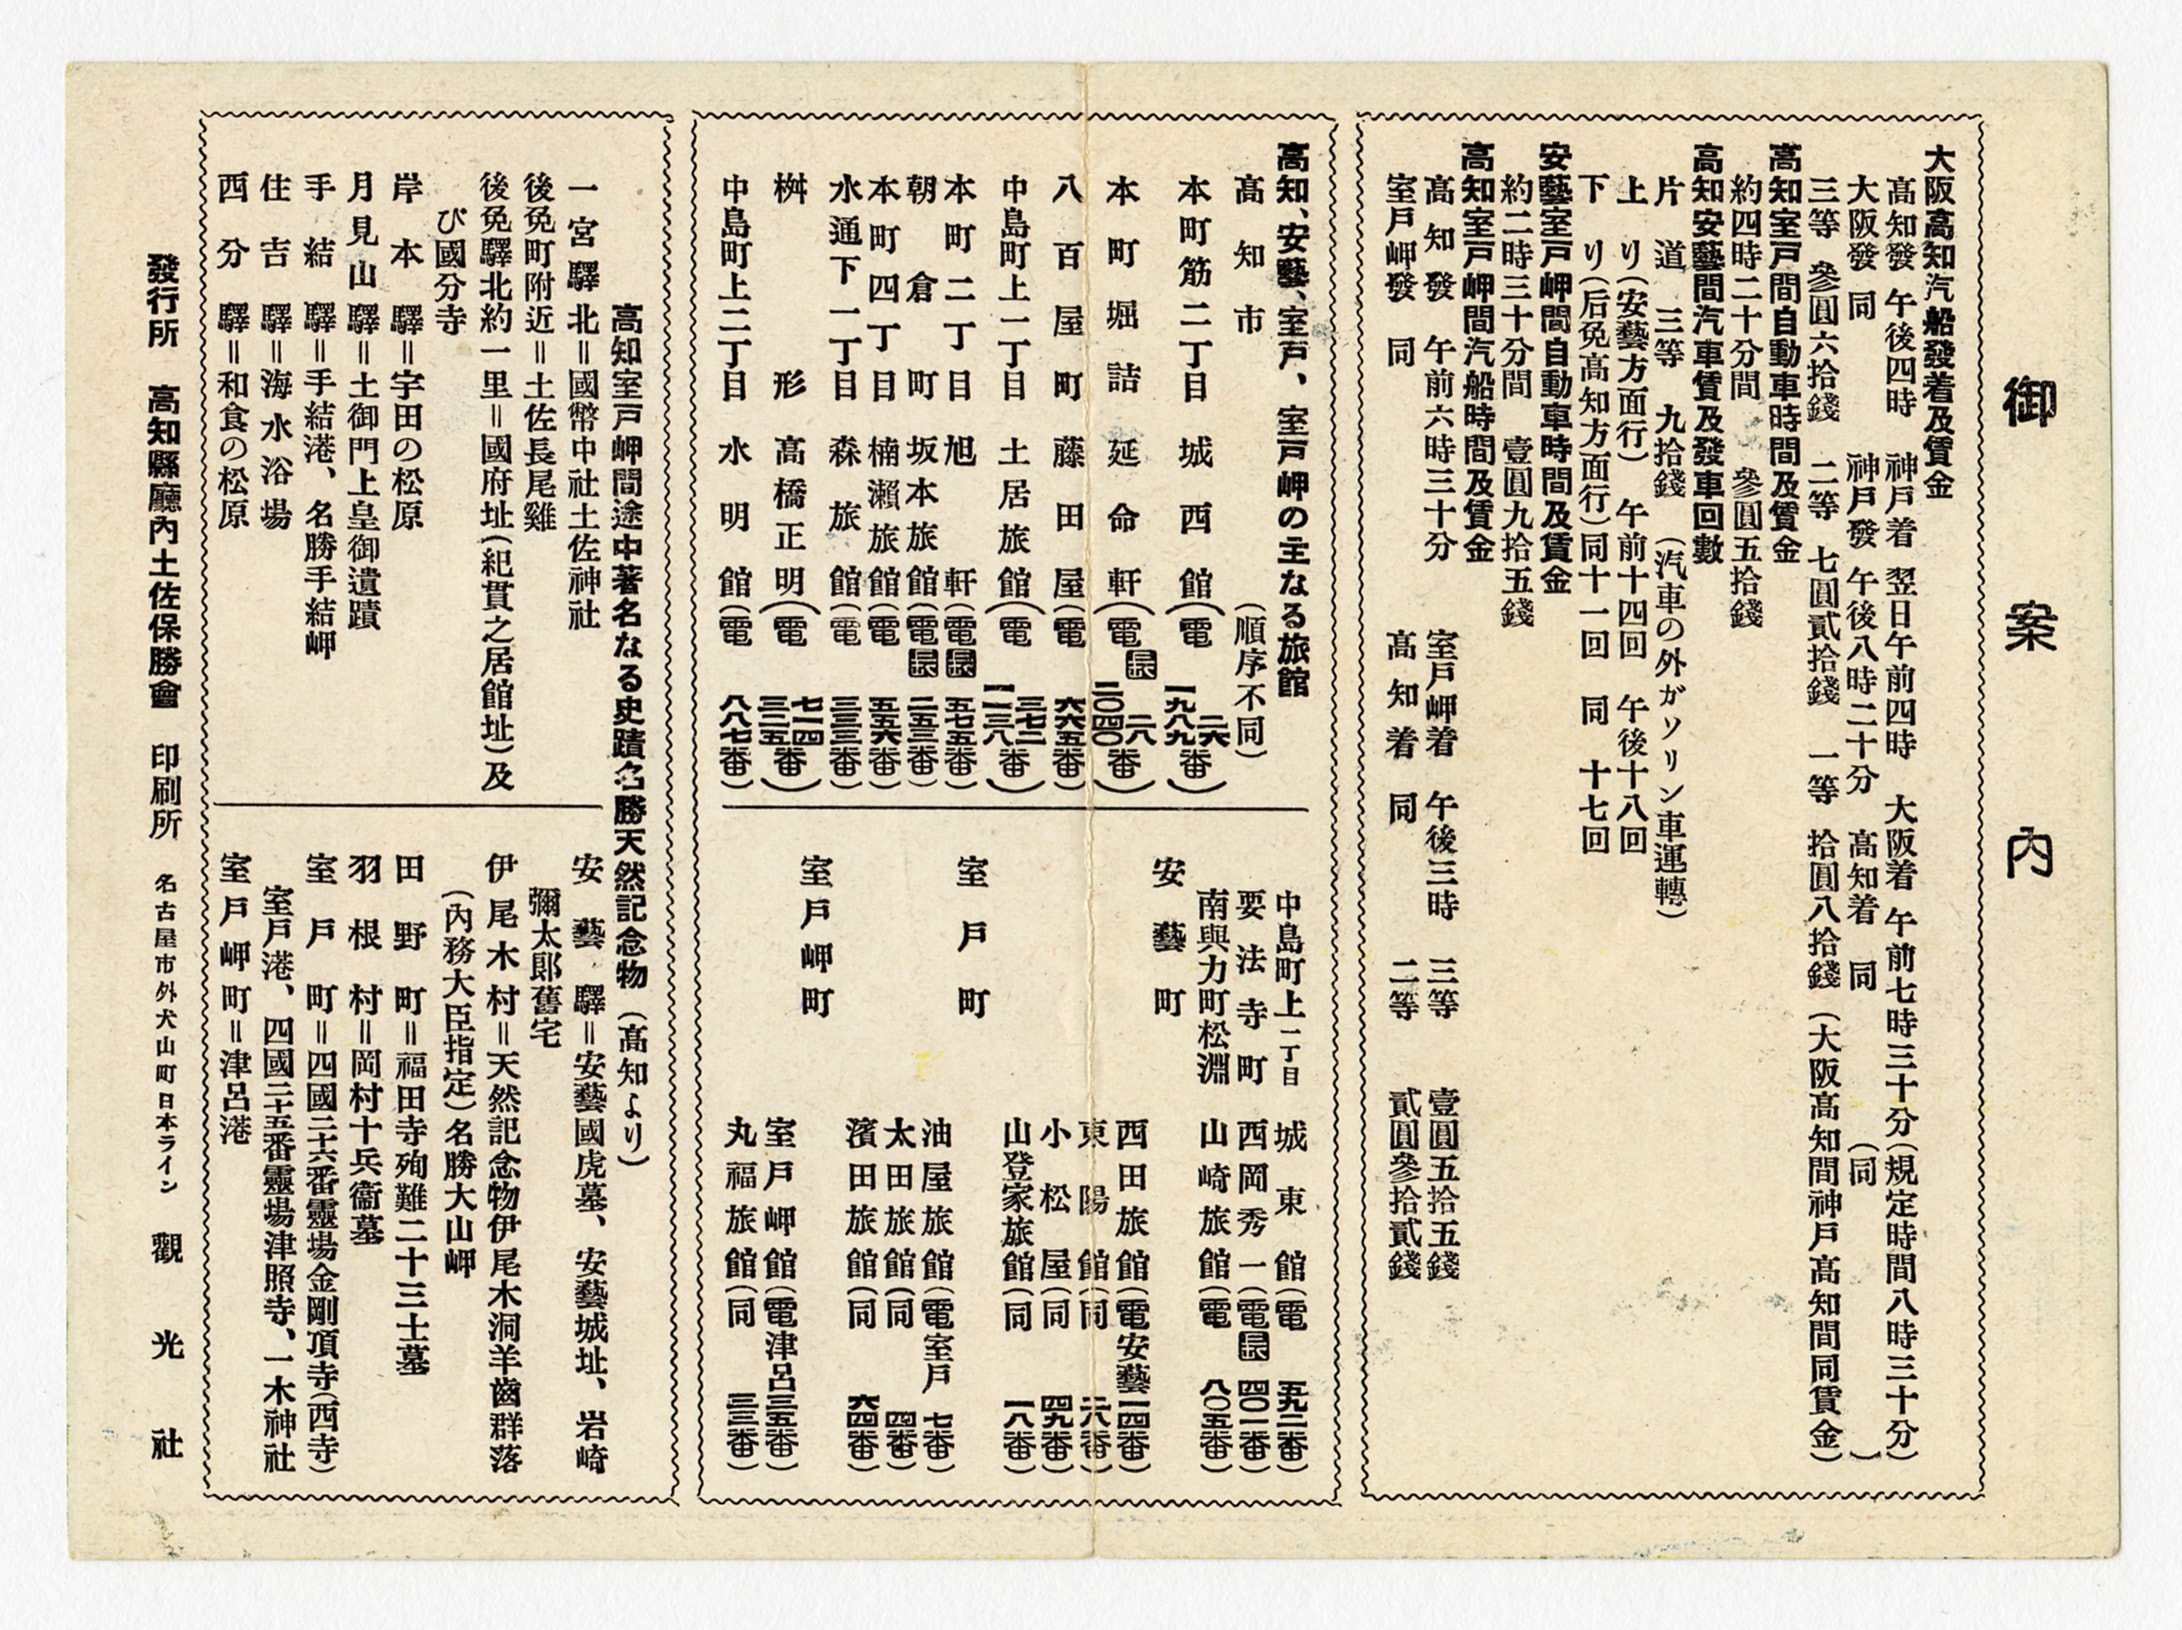 御案内
大阪高知汽船發着及賃金
高知發 午後四時 神戸着 翌日午前四時 大阪着 午前七時三十分(規定時間八時三十分)
大阪發 同 神戸發 午後八時二十分 高知着 同 (同 )
三等 參圓六拾錢 二等 七圓貳拾錢 一等 拾圓八拾錢 (大阪高知間神戸高知間同賃金)
高知室戸間自動車時間及賃金
約四時二十分間 參圓五拾錢
高知安藝間汽車賃及發車回數
片道 三等 九拾錢 (汽車の外ガソリン車運轉)
上り(安藝方面行) 午前十四回 午後十八回
下り(后免高知方面行)同十一回 同 十七回
安藝室戸岬間自動車時間及賃金
約二時三十分間 壹圓九拾五錢
高知室戸岬間汽船時間及賃金
高知發 午前六時三十分 室戸岬着 午後三時 三等 壹圓五拾五錢
室戸岬發 同 高知着 同 二等 貳圓參拾貳錢
高知、安藝、室戸、室戸岬の主なる旅館
高知市 (順序不同)
本町筋二丁目 城西館(電 二六 一九八九番)
本町堀詰 延命軒(電長 二八 二〇四〇番)
八百屋町 藤田屋(電 六六五番)
中島町上一丁目 土居旅館(電 三七二 一一三八番)
本町二丁目 旭軒(電長 五七五番)
朝倉町 坂本旅館(電長 二五三番)
本町四丁目 楠瀬旅館(電 五五六番)
水通下一丁目 森旅館(電 三三三番)
桝形 高橋正明(電 七一四 三二五番)
中島町上二丁目 水明館(電 八八七番)
中島町上二丁目 城東館(電 五九二番)
要法寺町 西岡秀一(電長 四〇一番)
南與力町松淵 山崎旅館(電 八〇五番)
安藝町 西田旅館(電安藝一四番)
東陽館(同 二八番)
小松屋(同 四九番)
山登家旅館(同 一八番)
室戸町 油屋旅館(電室戸 七番)
太田旅館(同 四番)
濱田旅館(同 六四番)
室戸岬町 室戸岬館(電津呂三五番)
丸福旅館(同 三三番)
高知室戸岬間途中著名なる史蹟名勝天然記念物(高知より)
一宮驛北=國幣中社土佐神社
後免町附近=土佐長尾雞
後免驛北約一里=國府址(紀貫之居館址)及
び國分寺
岸本驛=宇田の松原
月見山驛=土御門上皇御遺蹟
手結驛=手結港、名勝手結岬
住吉驛=海水浴場
西分驛=和食の松原
安藝驛=安藝國虎墓、安藝城址、岩崎
彌太郎舊宅
伊尾木村=天然記念物伊尾木洞羊齒群落
(內務大臣指定)名勝大山岬
田野町=福田寺殉難二十三士墓
羽根村=岡村十兵衞墓
室戸町=四國二十六番靈場金剛頂寺(西寺)
室戸港、四國二十五番靈場津照寺、一木神社
室戸岬町=津呂港
發行所 高知縣廳內土佐保勝會 印刷所 名古屋市外犬山町日本ライン 觀光社